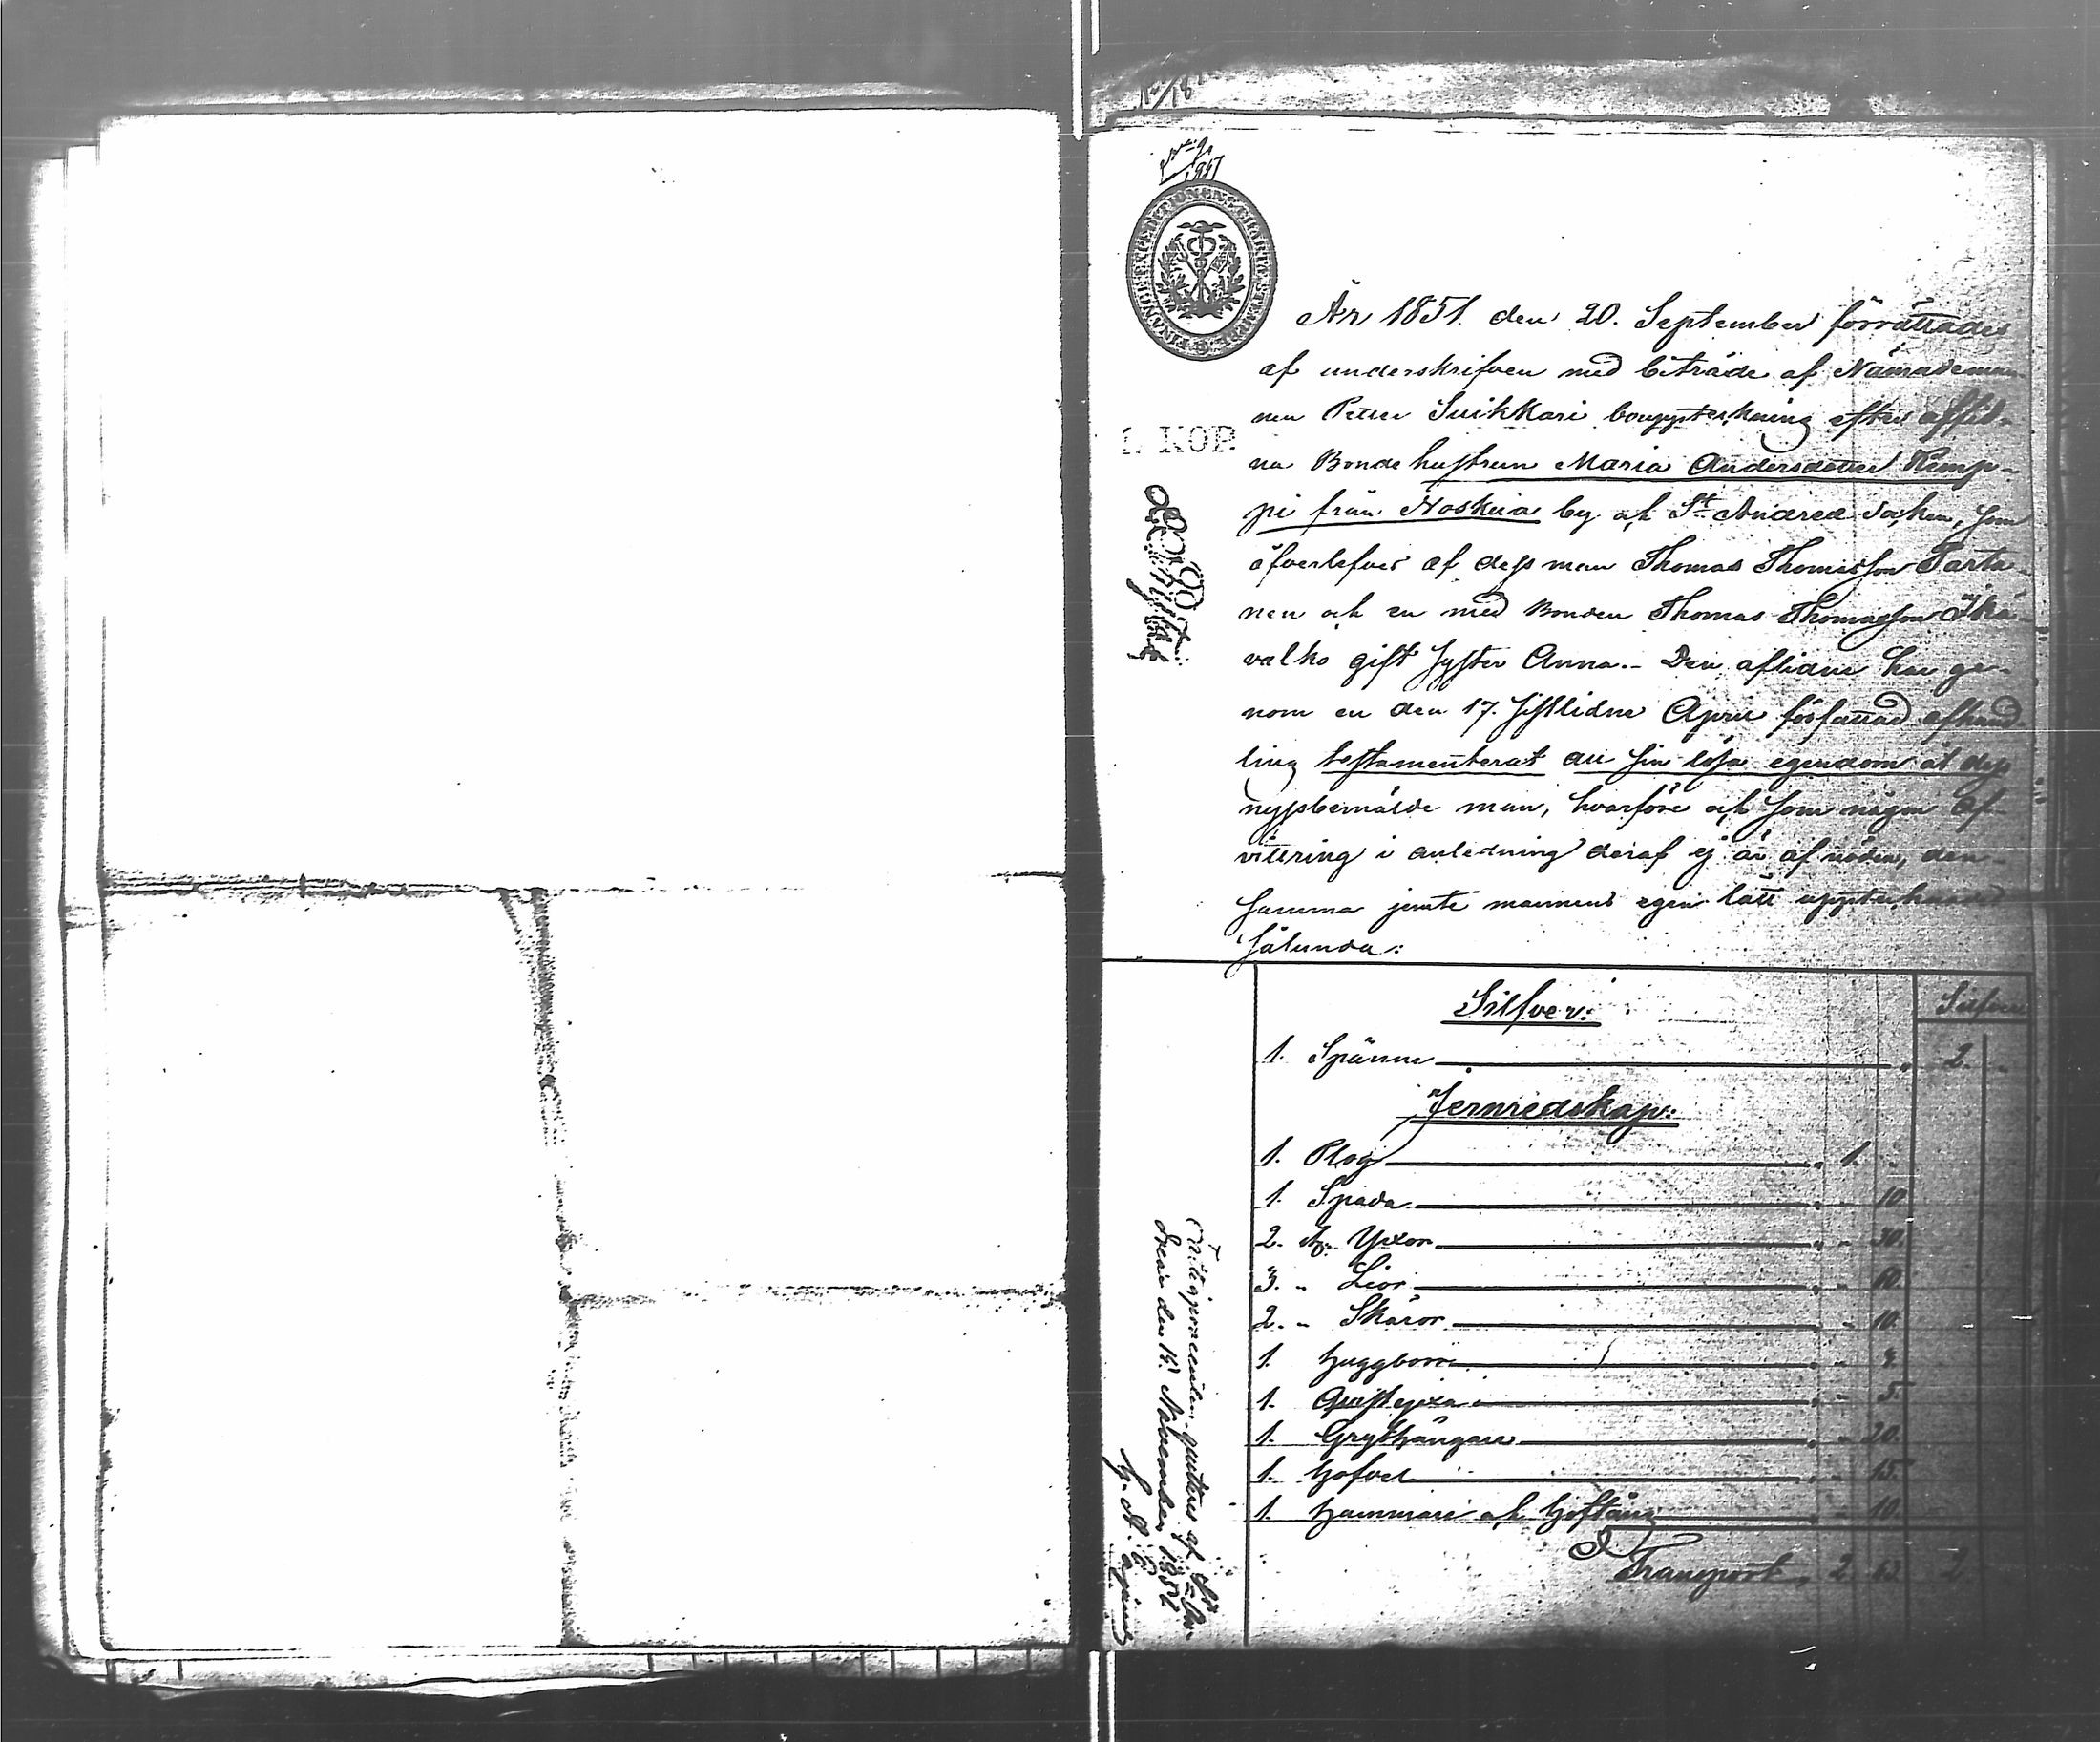 FINANCE EXPEDITIONENS CHARTÆ STÄMPEL
År 1851. den 20. September förrättades
af underskrifven med biträde af Nämndeman
nen Petter Suikkari bouppteckning efter aflid-
na Bonde hustrun Maria Andersdotter Kemp-
1. KOP.
pi från Noskua by och St Andreæ Socken, som
öfverlefves af dess man Thomas Thomasson Parta-
nen och en med Bonden Thomas Thomasson Ikä-
valko gift syster Anna. - Den aflidne har ge-
nom en den 17. sistlidne April författad afhand-
ling testamenterat all sin lösa egendom åt dess
nyssbemälde man, hvarföre och som någon af-
vittring i anledning deraf ej är af nöden, den-
samma jemte mannens egen lått upptecknades
sålunda:
Silfver:
Silfver
1. Spänne 2.
Jernredskap:
1. Plog 1.
1. Spada 10.
2. st. Yxor 30.
3. " Liar 60.
2. " Skäror 10.
1. Huggborr 3
1. Qvistyxa 5.
1. Grythängare 20.
1. Hofvel 15.
1. Hammare och Hoftång 10.
Transport, 2. 63. 2
Fattigprocenten qvitteras af St An-
dreæ den 18. November 1852